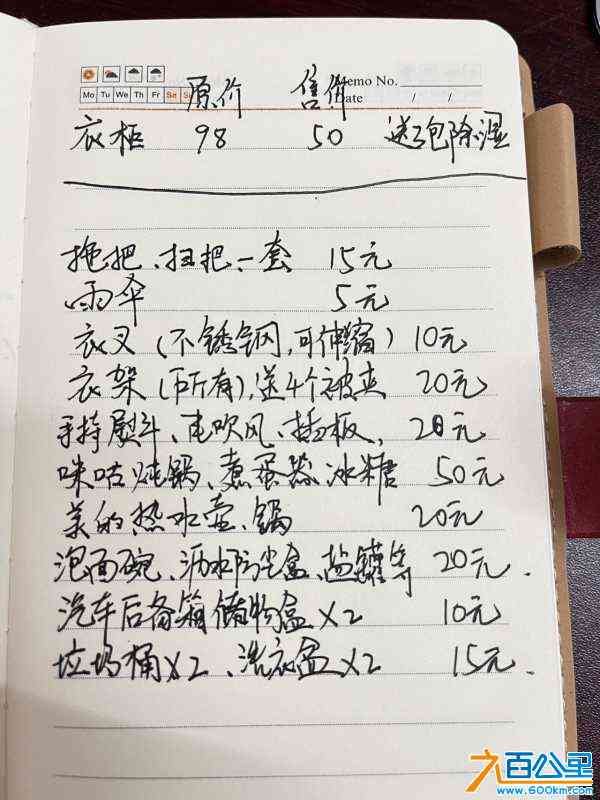 Memo No.
Mo Tu We Th Fr Sa Su
Date / /
原价 售价
衣柜 98 50 送3包除湿
拖把、扫把、一套 15元
雨伞 5元
衣叉(不锈钢,可伸缩) 10元
衣架(所有),送4个被夹 20元
手持熨斗、电吹风、插板, 20元
咪咕炖锅、煮蛋器、冰糖 50元
美的热水壶、锅 20元
泡面碗、沥水防尘盒、盐罐等 20元.
汽车后备箱储物盒×2 10元
垃圾桶×2、洗衣盆×2 15元.
六百公里
www.600km.com